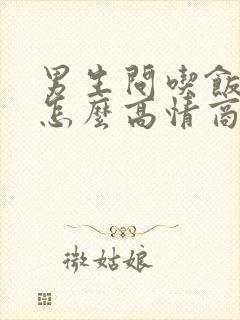 男生問喫飯
怎麼高情商
微姑娘